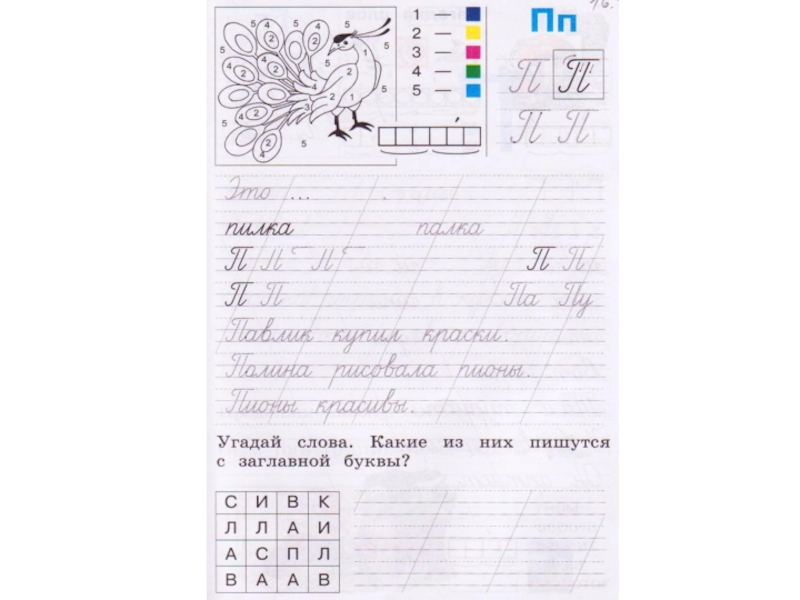 16.
Пп
1 —
2 —
3 —
4 —
5 —
П П
П П
Это ...
пилка палка
П П П П П
П П Па Пу
Павлик купил краски.
Полина рисовала пионы.
Пионы красивы.
Угадай слова. Какие из них пишутся
с заглавной буквы?
С И В К
Л Л А И
А С П Л
В А А В